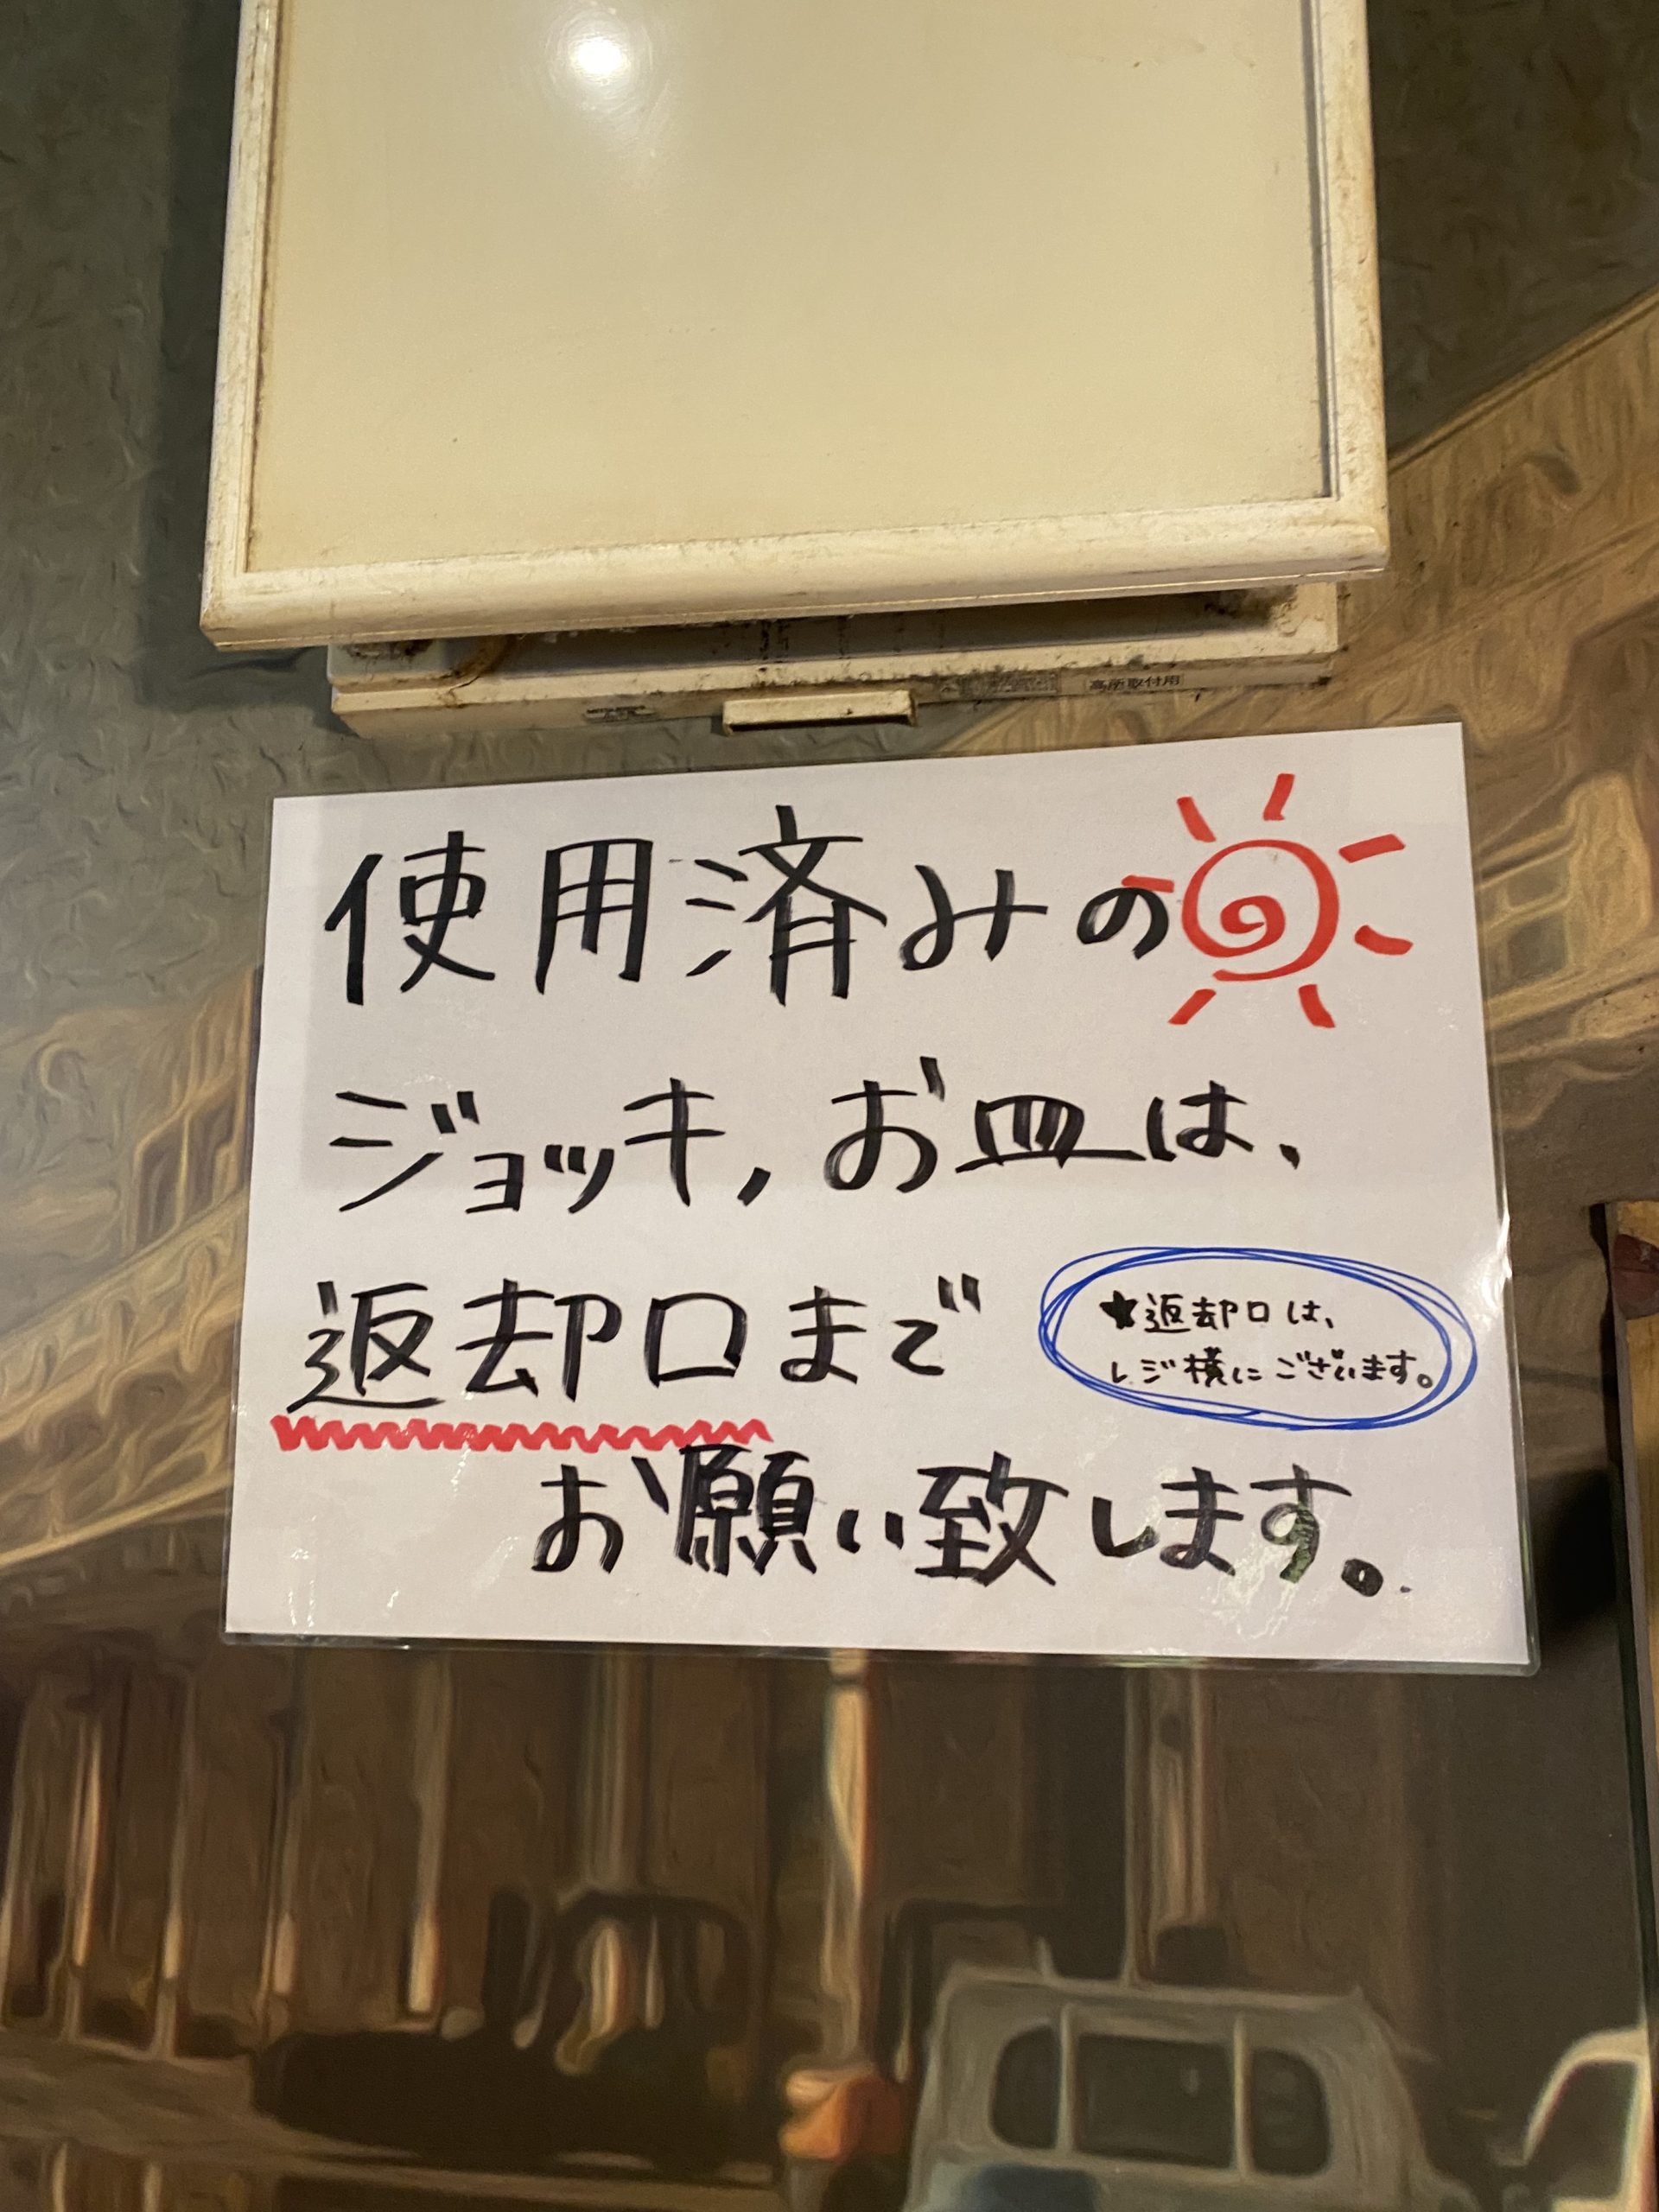 高所取付用
使用済みの
ジョッキ,お皿は、
返却口まで
★返却口は、
レジ横にございます。
お願い致します。